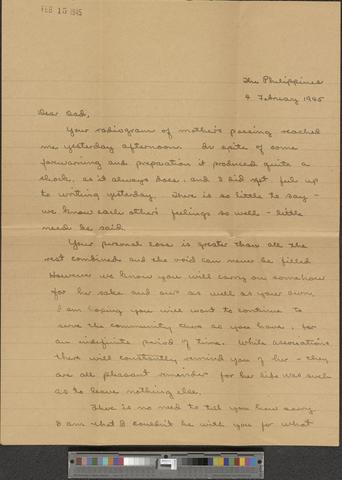 FEB 15 1945
The Philippines
4 February 1945
Dear Dad,
Your radiogram of mother's passing reached
me yesterday afternoon. In spite of some
forewarning and preparation it produced quite a
shock, as it always does, and I did not feel up
to writing yesterday. There is so little to say -
we know each other's feelings so well - little
need be said.
Your personal loss is greater than all the
rest combined and the void can never be filled.
However we know you will carry on somehow
for her sake and ours as well as your own.
I am hoping you will want to continue to
serve the community there as you have, for
an indefinite period of time. While associations
there will constantly remind you of her - they
are all pleasant reminders for her life was such
as to leave nothing else.
There is no need to tell you how sorry
I am that I couldn't be with you for what